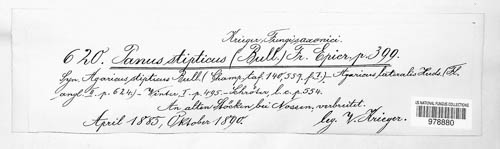 Krieger, Fungi saxonici.
620. Panus stipticus (Bull.) Fr. Epicr. p. 399.
Syn. Agaricus stipticus Bull. (Champ. taf. 140, 557. f. I) – Agaricus lateralis Huds. (Fl.
angl. I. p. 624.) – Winter I. p. 495. – Schröter, l. c. p. 554.
An alten Stöcken bei Nossen, verbreitet.
April 1885, Oktober 1890. leg. W. Krieger.
US NATIONAL FUNGUS COLLECTIONS
978880